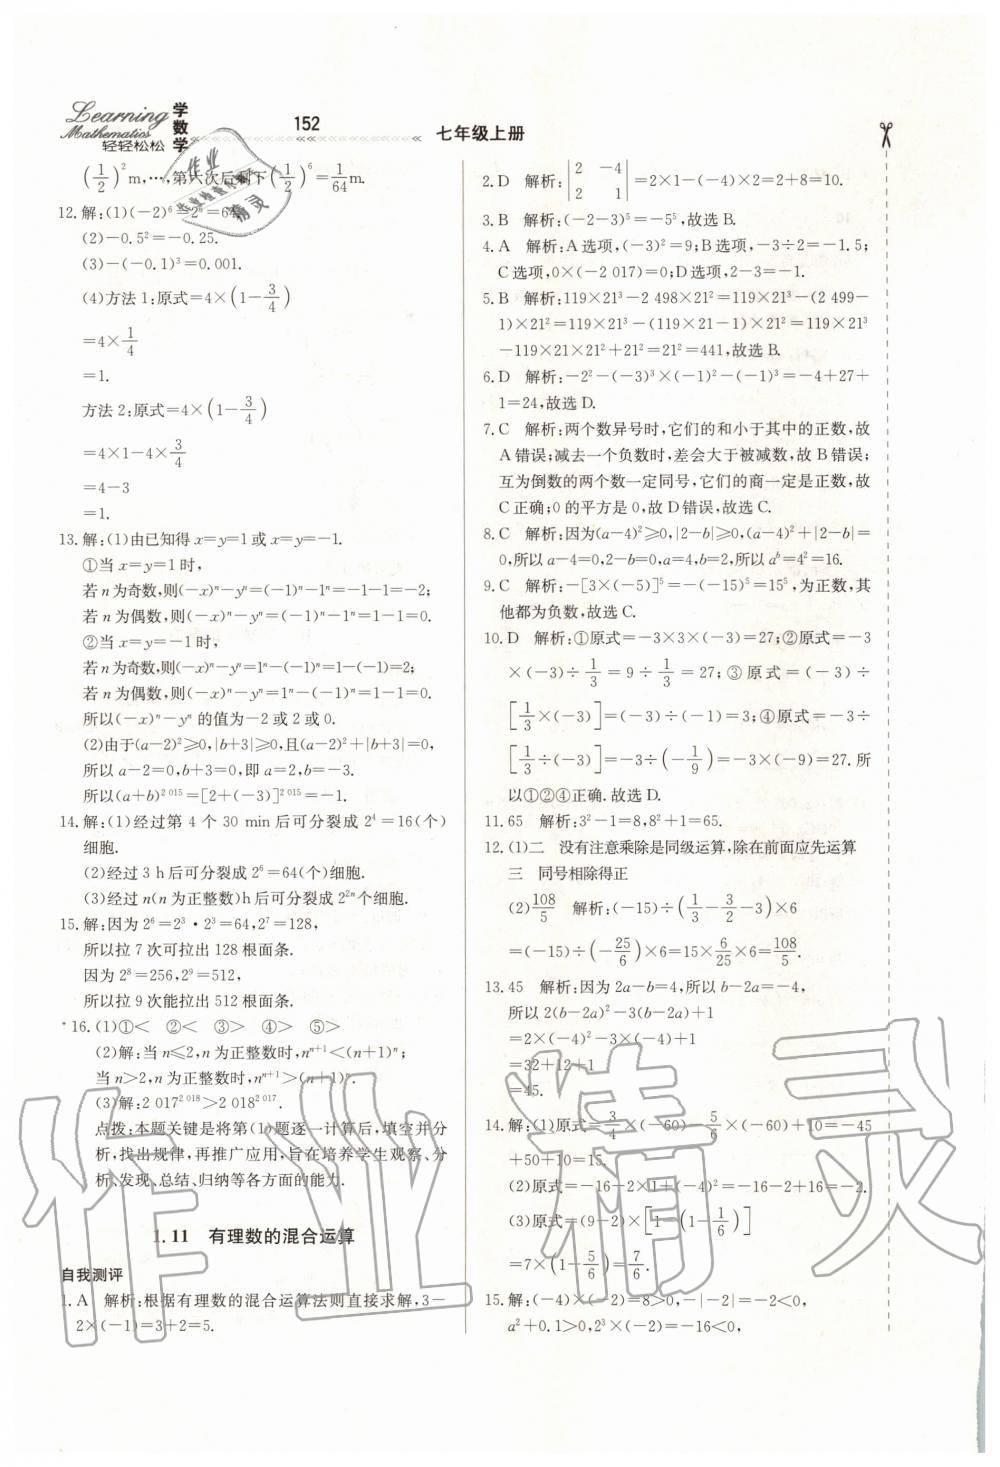 Learning
Mathematics
轻轻松松
学数学
152
七年级上册
(1/2)²m,…,第六次后剩下(1/2)⁶=1/64m.
12.解:(1)(-2)⁶=2⁶=64.
(2)-0.5²=-0.25.
(3)-(-0.1)³=0.001.
(4)方法1:原式=4×(1-3/4)
=4×1/4
=1.
方法2:原式=4×(1-3/4)
=4×1-4×3/4
=4-3
=1.
13.解:(1)由已知得x=y=1或x=y=-1.
①当x=y=1时,
若n为奇数,则(-x)ⁿ-yⁿ=(-1)ⁿ-1ⁿ=-1-1=-2;
若n为偶数,则(-x)ⁿ-yⁿ=(-1)ⁿ-1ⁿ=1-1=0.
②当x=y=-1时,
若n为奇数,则(-x)ⁿ-yⁿ=1ⁿ-(-1)ⁿ=1-(-1)=2;
若n为偶数,则(-x)ⁿ-yⁿ=1ⁿ-(-1)ⁿ=1-1=0.
所以(-x)ⁿ-yⁿ的值为-2或2或0.
(2)由于(a-2)²≥0,|b+3|≥0,且(a-2)²+|b+3|=0,
所以a-2=0,b+3=0,即a=2,b=-3.
所以(a+b)²⁰¹⁵=[2+(-3)]²⁰¹⁵=-1.
14.解:(1)经过第4个30 min后可分裂成2⁴=16(个)
细胞.
(2)经过3 h后可分裂成2⁶=64(个)细胞.
(3)经过n(n为正整数)h后可分裂成2²ⁿ个细胞.
15.解:因为2⁶=2³·2³=64,2⁷=128,
所以拉7次可拉出128根面条.
因为2⁸=256,2⁹=512,
所以拉9次能拉出512根面条.
*16.(1)①< ②< ③> ④> ⑤>
(2)解:当n≤2,n为正整数时,nⁿ⁺¹<(n+1)ⁿ;
当n>2,n为正整数时,nⁿ⁺¹>(n+1)ⁿ.
(3)解:2 017²⁰¹⁸>2 018²⁰¹⁷.
点拨:本题关键是将第(1)题逐一计算后,填空并分
析,找出规律,再推广应用,旨在培养学生观察、分
析、发现、总结、归纳等各方面的能力.
1.11 有理数的混合运算
自我测评
1.A 解析:根据有理数的混合运算法则直接求解,3-
2×(-1)=3+2=5.
2.D 解析:|2 -4; 2 1|=2×1-(-4)×2=2+8=10.
3.B 解析:(-2-3)⁵=-5⁵,故选B.
4.A 解析:A选项,(-3)²=9;B选项,-3÷2=-1.5;
C选项,0×(-2 017)=0;D选项,2-3=-1.
5.B 解析:119×21³-2 498×21²=119×21³-(2 499-
1)×21²=119×21³-(119×21-1)×21²=119×21³
-119×21×21²+21²=21²=441,故选B.
6.D 解析:-2²-(-3)³×(-1)²-(-1)³=-4+27+
1=24,故选D.
7.C 解析:两个数异号时,它们的和小于其中的正数,故
A错误;减去一个负数时,差会大于被减数,故B错误;
互为倒数的两个数一定同号,它们的商一定是正数,故
C正确;0的平方是0,故D错误,故选C.
8.C 解析:因为(a-4)²≥0,|2-b|≥0,(a-4)²+|2-b|=
0,所以a-4=0,2-b=0,a=4,b=2,所以aᵇ=4²=16.
9.C 解析:-[3×(-5)]⁵=-(-15)⁵=15⁵,为正数,其
他都为负数,故选C.
10.D 解析:①原式=-3×3×(-3)=27;②原式=-3
×(-3)÷1/3=9÷1/3=27;③原式=(-3)÷
[1/3×(-3)]=(-3)÷(-1)=3;④原式=-3÷
[1/3÷(-3)]=-3÷(-1/9)=-3×(-9)=27.所
以①②④正确.故选D.
11.65 解析:3²-1=8,8²+1=65.
12.(1)二 没有注意乘除是同级运算,除在前面应先运算
三 同号相除得正
(2)108/5 解析:(-15)÷(1/3-3/2-3)×6
=(-15)÷(-25/6)×6=15×6/25×6=108/5.
13.45 解析:因为2a-b=4,所以b-2a=-4,
所以2(b-2a)²-3(b-2a)+1
=2×(-4)²-3×(-4)+1
=32+12+1
=45.
14.解:(1)原式=3/4×(-60)-5/6×(-60)+10=-45
+50+10=15.
(2)原式=-16-2×1+(-4)²=-16-2+16=-2.
(3)原式=(9-2)×[1-(1-1/6)]
=7×(1-5/6)=7/6.
15.解:(-4)×(-2)=8>0,-|-2|=-2<0,
a²+0.1>0,2³×(-2)=-16<0,
作业精灵